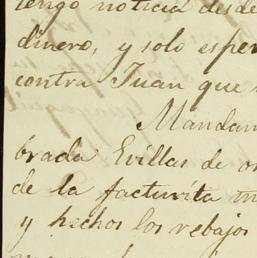 tengo noticia desde
dinero, y solo esper
contra Juan que
Mandam
brada Evillas de or
de la facturita in
y hechos los rebajos